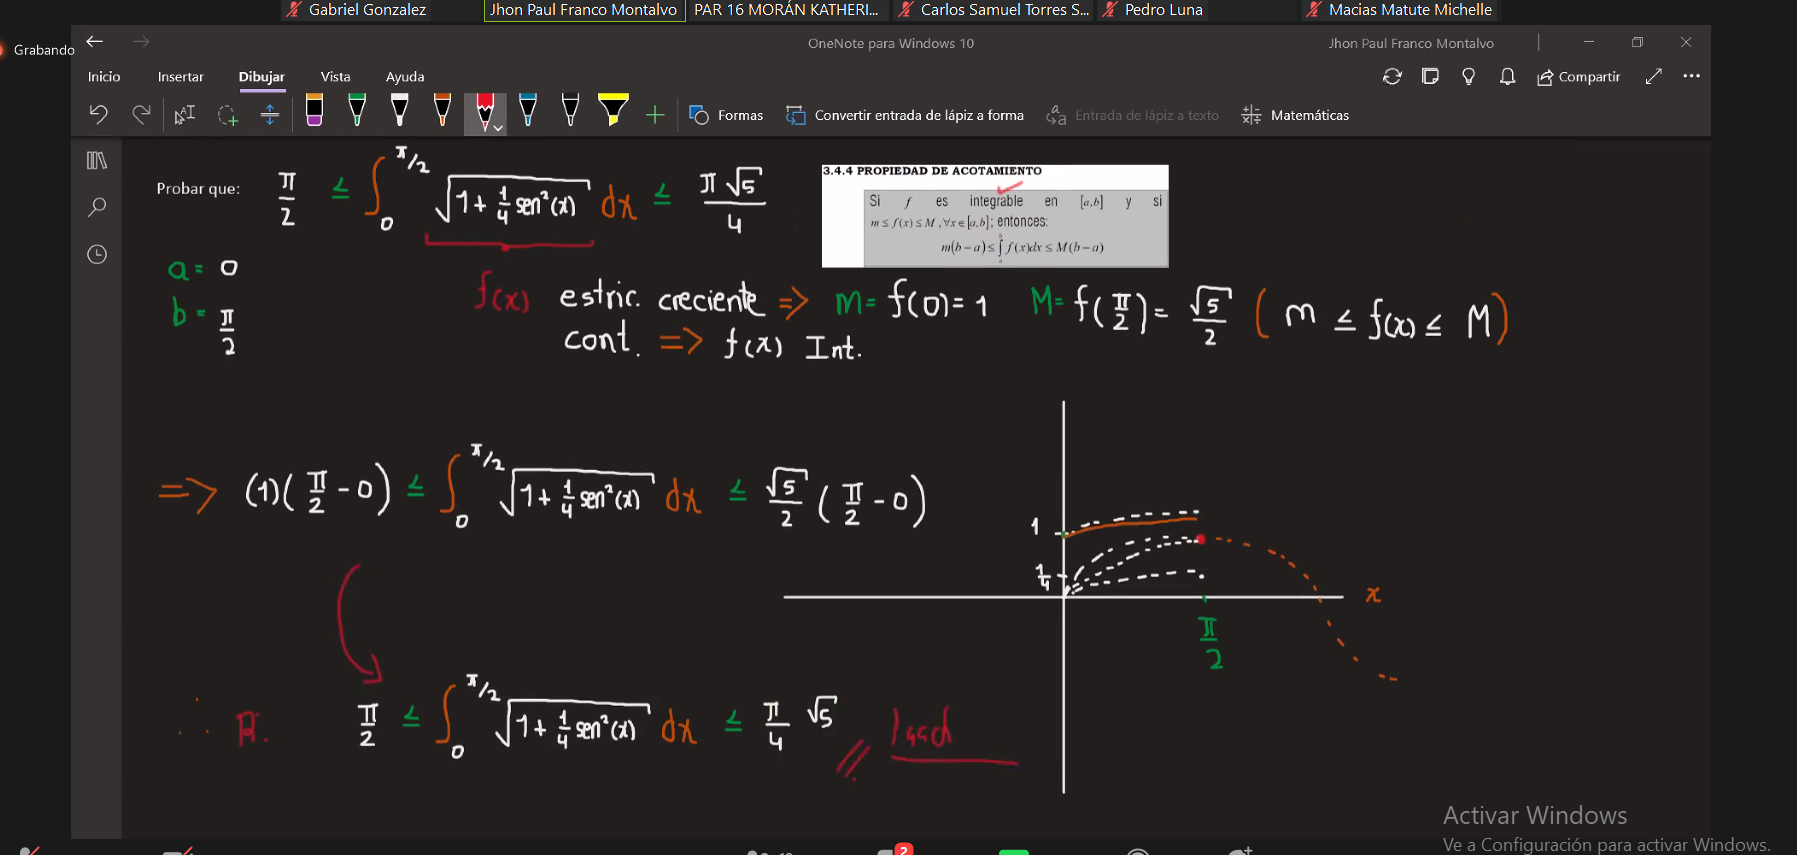 Gabriel Gonzalez Jhon Paul Franco Montalvo PAR 16 MORÁN KATHERI... Carlos Samuel Torres S... Pedro Luna Macias Matute Michelle
Grabando
OneNote para Windows 10 Jhon Paul Franco Montalvo
Inicio Insertar Dibujar Vista Ayuda Compartir
Formas Convertir entrada de lápiz a forma Entrada de lápiz a texto Matemáticas
Probar que: π/2 ≤ ∫₀^π/2 √(1 + 1/4 sen²(x)) dx ≤ π√5/4
3.4.4 PROPIEDAD DE ACOTAMIENTO
Si f es integrable en [a,b] y si
m ≤ f(x) ≤ M, ∀x∈[a,b]; entonces:
m(b−a) ≤ ∫ₐᵇ f(x)dx ≤ M(b−a)
a = 0
b = π/2
f(x) estric. creciente => m = f(0) = 1 M = f(π/2) = √5/2 ( m ≤ f(x) ≤ M )
cont. => f(x) Int.
=> (1)(π/2 - 0) ≤ ∫₀^π/2 √(1 + 1/4 sen²(x)) dx ≤ √5/2 (π/2 - 0)
1
1/4
x
π/2
∴ π/2 ≤ ∫₀^π/2 √(1 + 1/4 sen²(x)) dx ≤ π/4 √5 //
Activar Windows
Ve a Configuración para activar Windows.
2